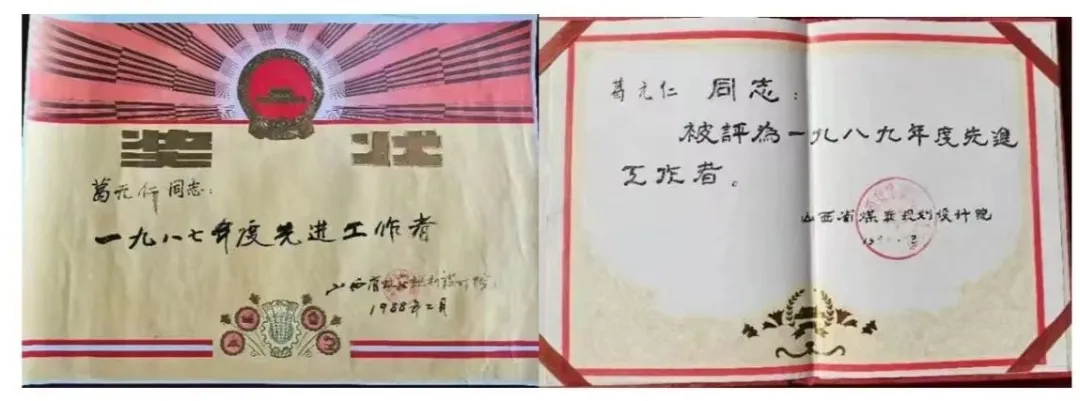 奖状
葛元仁 同志:
一九八七年度先进工作者
山西省煤炭规划设计院
1988年二月
葛元仁 同志:
被評為一九八九年度先進
工作者。
山西省煤炭规划设计院